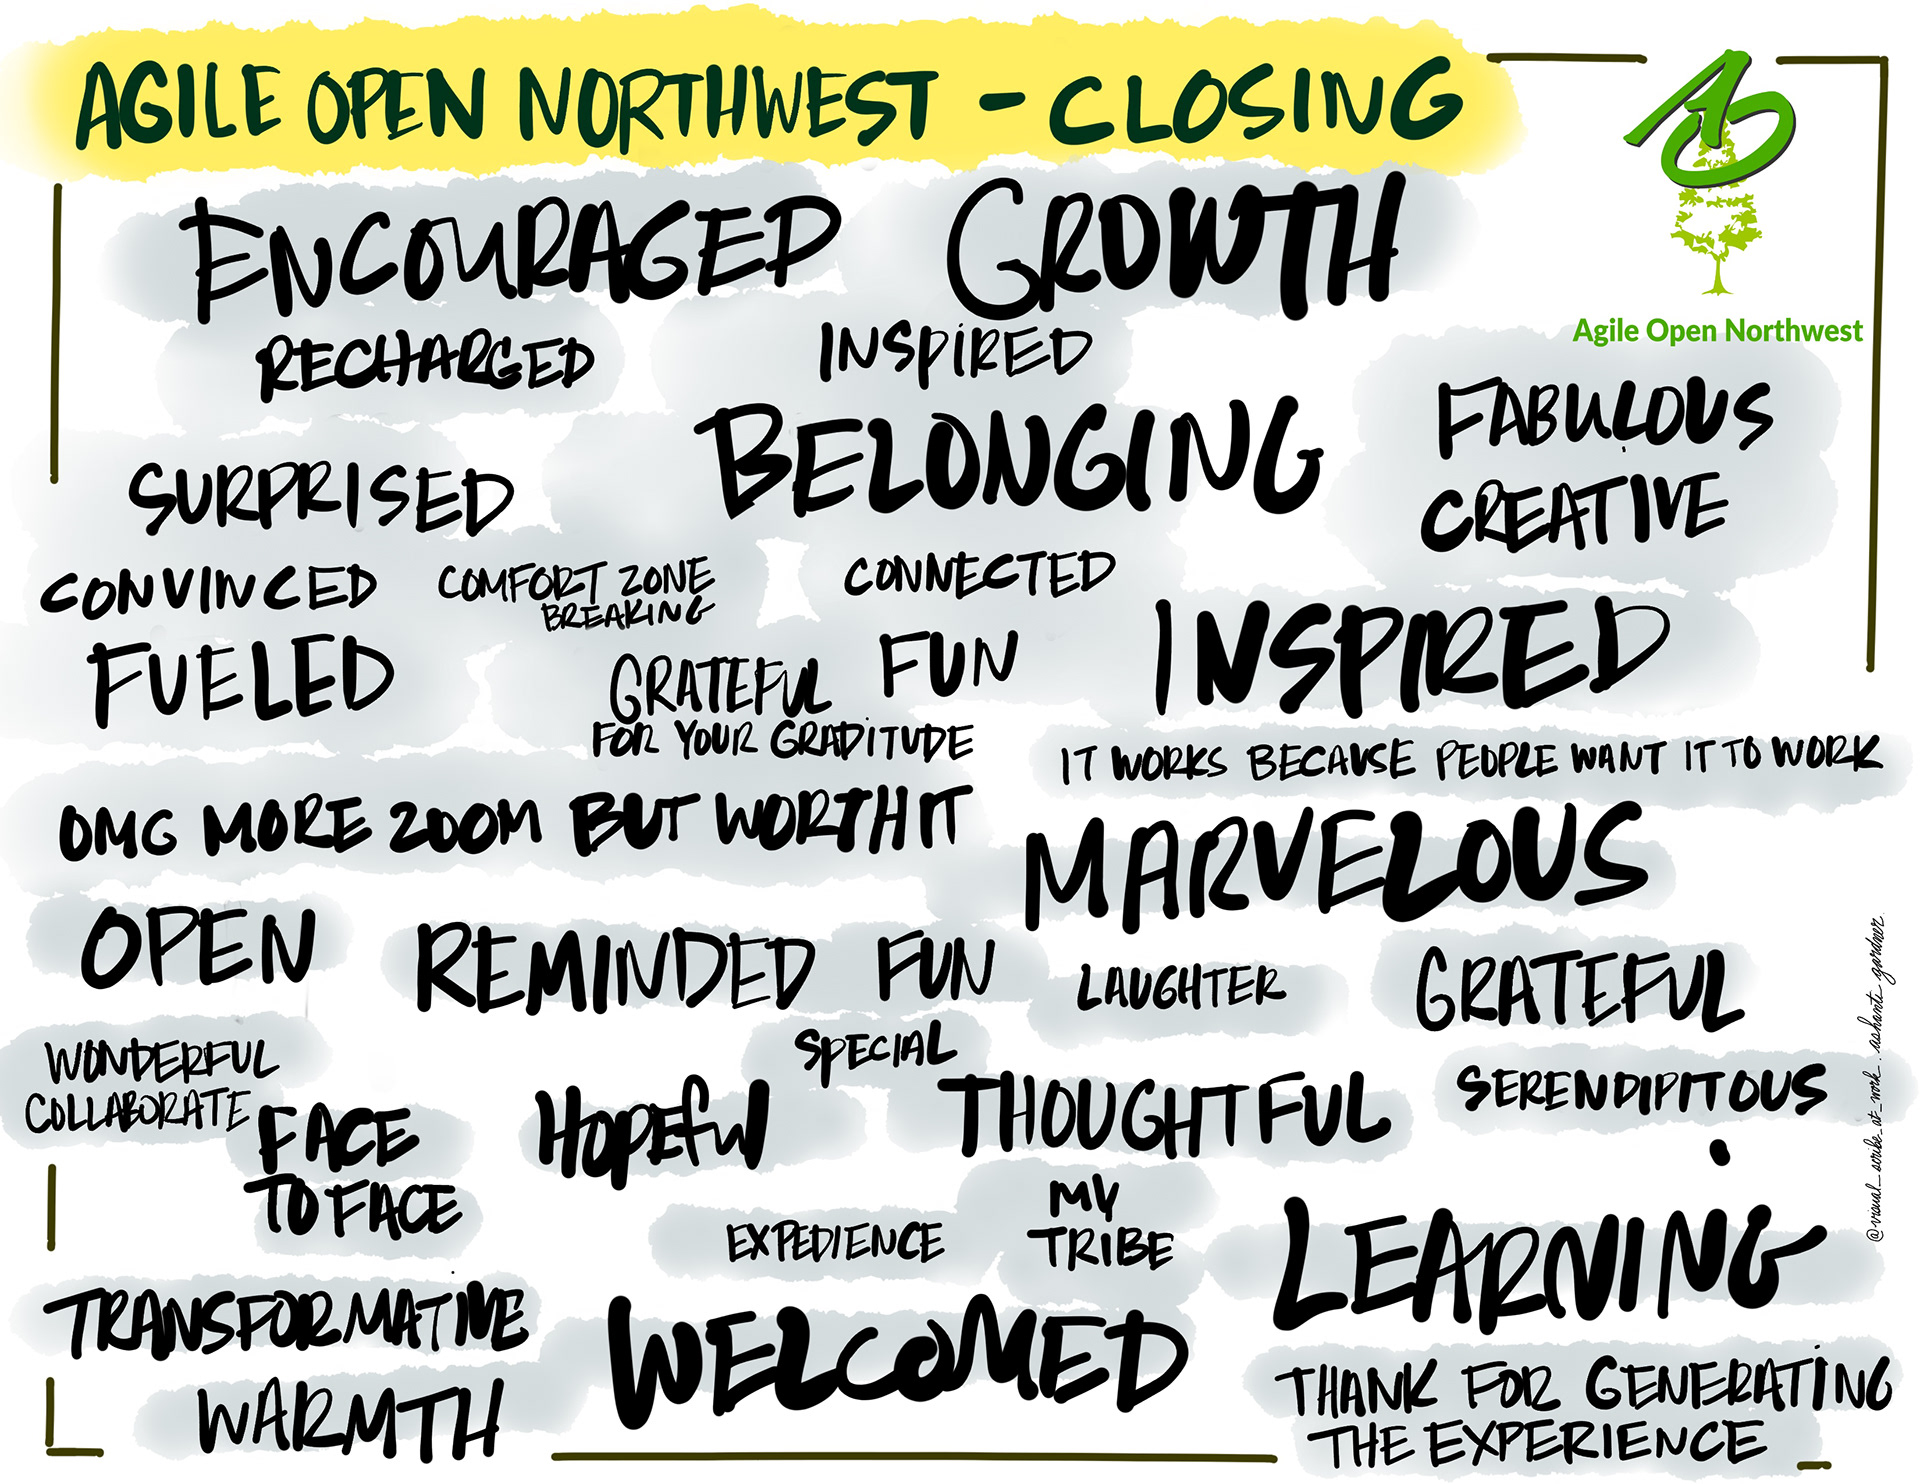 AGILE OPEN NORTHWEST - CLOSING
Agile Open Northwest
ENCOURAGED
GROWTH
RECHARGED
INSPIRED
BELONGING
FABULOUS
CREATIVE
SURPRISED
CONVINCED
COMFORT ZONE
BREAKING
CONNECTED
INSPIRED
FUELED
GRATEFUL
FOR YOUR GRADITUDE
FUN
IT WORKS BECAUSE PEOPLE WANT IT TO WORK
OMG MORE ZOOM BUT WORTH IT
MARVELOUS
OPEN
REMINDED
FUN
LAUGHTER
GRATEFUL
WONDERFUL
COLLABORATE
SPECIAL
HOPEFUL
THOUGHTFUL
SERENDIPITOUS
FACE
TO FACE
EXPEDIENCE
MY
TRIBE
LEARNING
TRANSFORMATIVE
WELCOMED
WARMTH
THANK FOR GENERATING
THE EXPERIENCE
@visual_scribe_at_work. ashanti gardner.